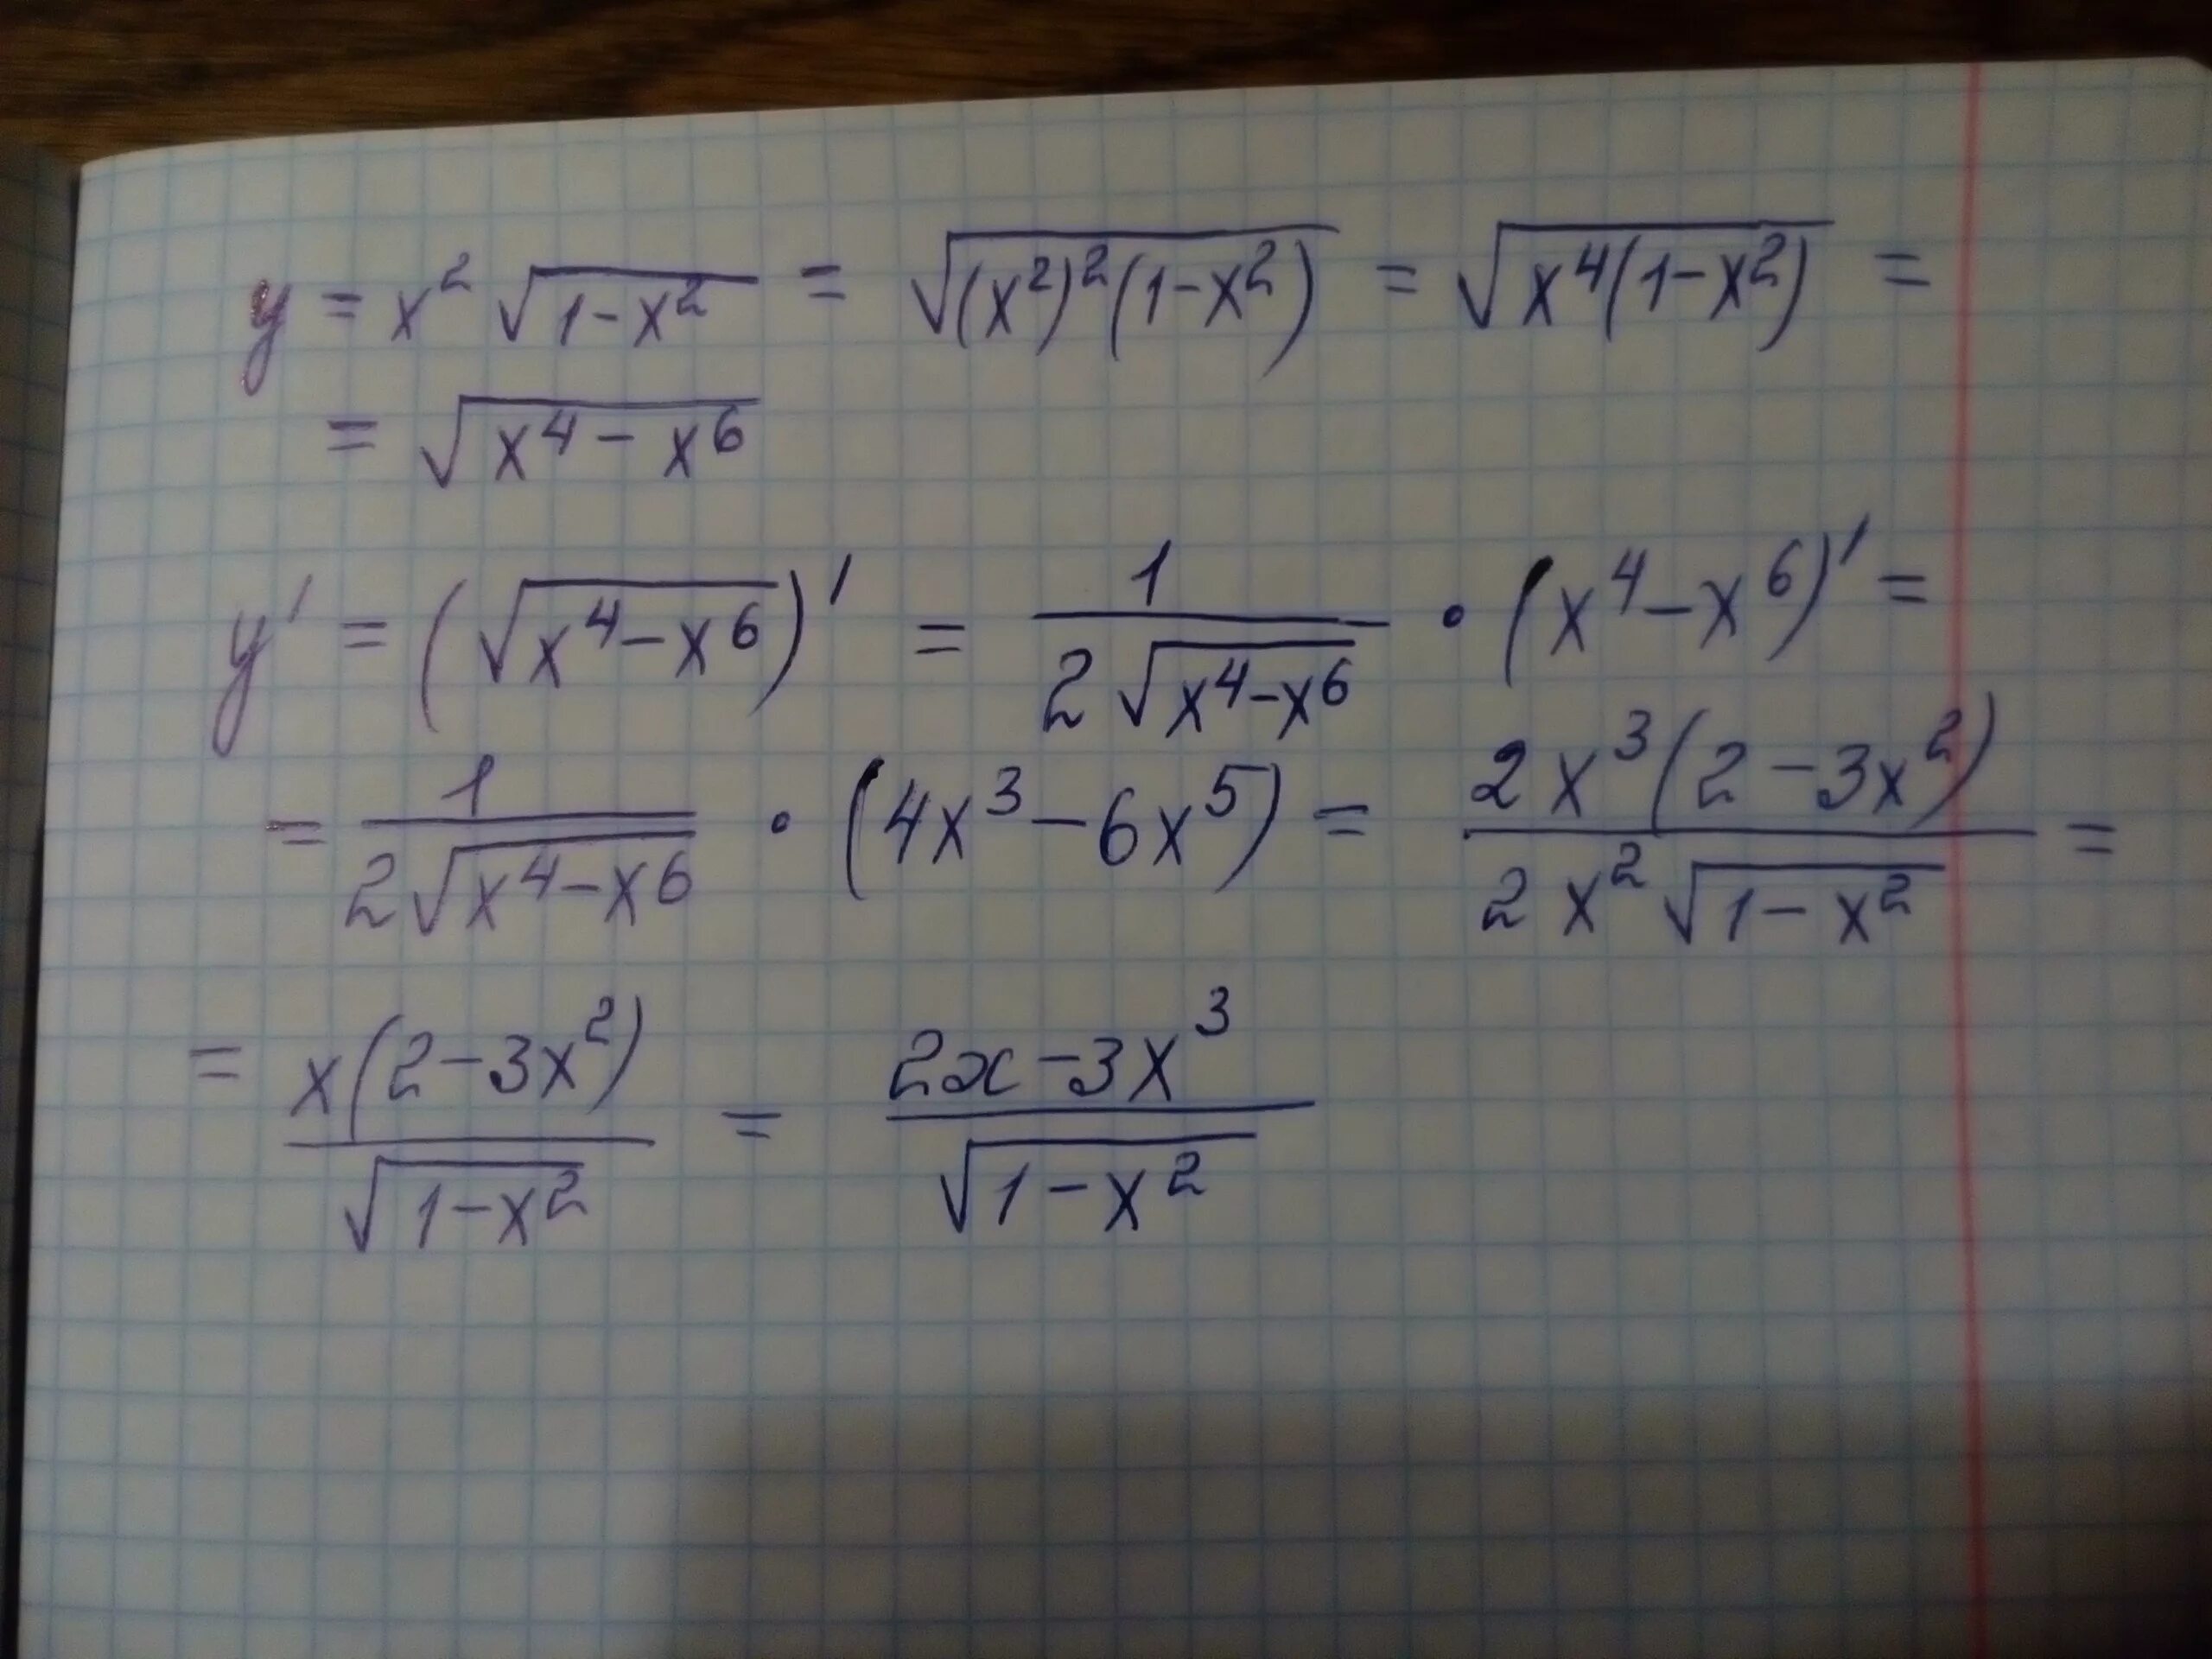 y = x² √(1-x²) = √((x²)²(1-x²)) = √(x⁴(1-x²)) =
= √(x⁴ - x⁶)
y' = (√(x⁴-x⁶))' = 1/(2√(x⁴-x⁶)) · (x⁴-x⁶)' =
= 1/(2√(x⁴-x⁶)) · (4x³-6x⁵) = 2x³(2-3x²)/(2x²√(1-x²)) =
= x(2-3x²)/√(1-x²) = (2x-3x³)/√(1-x²)